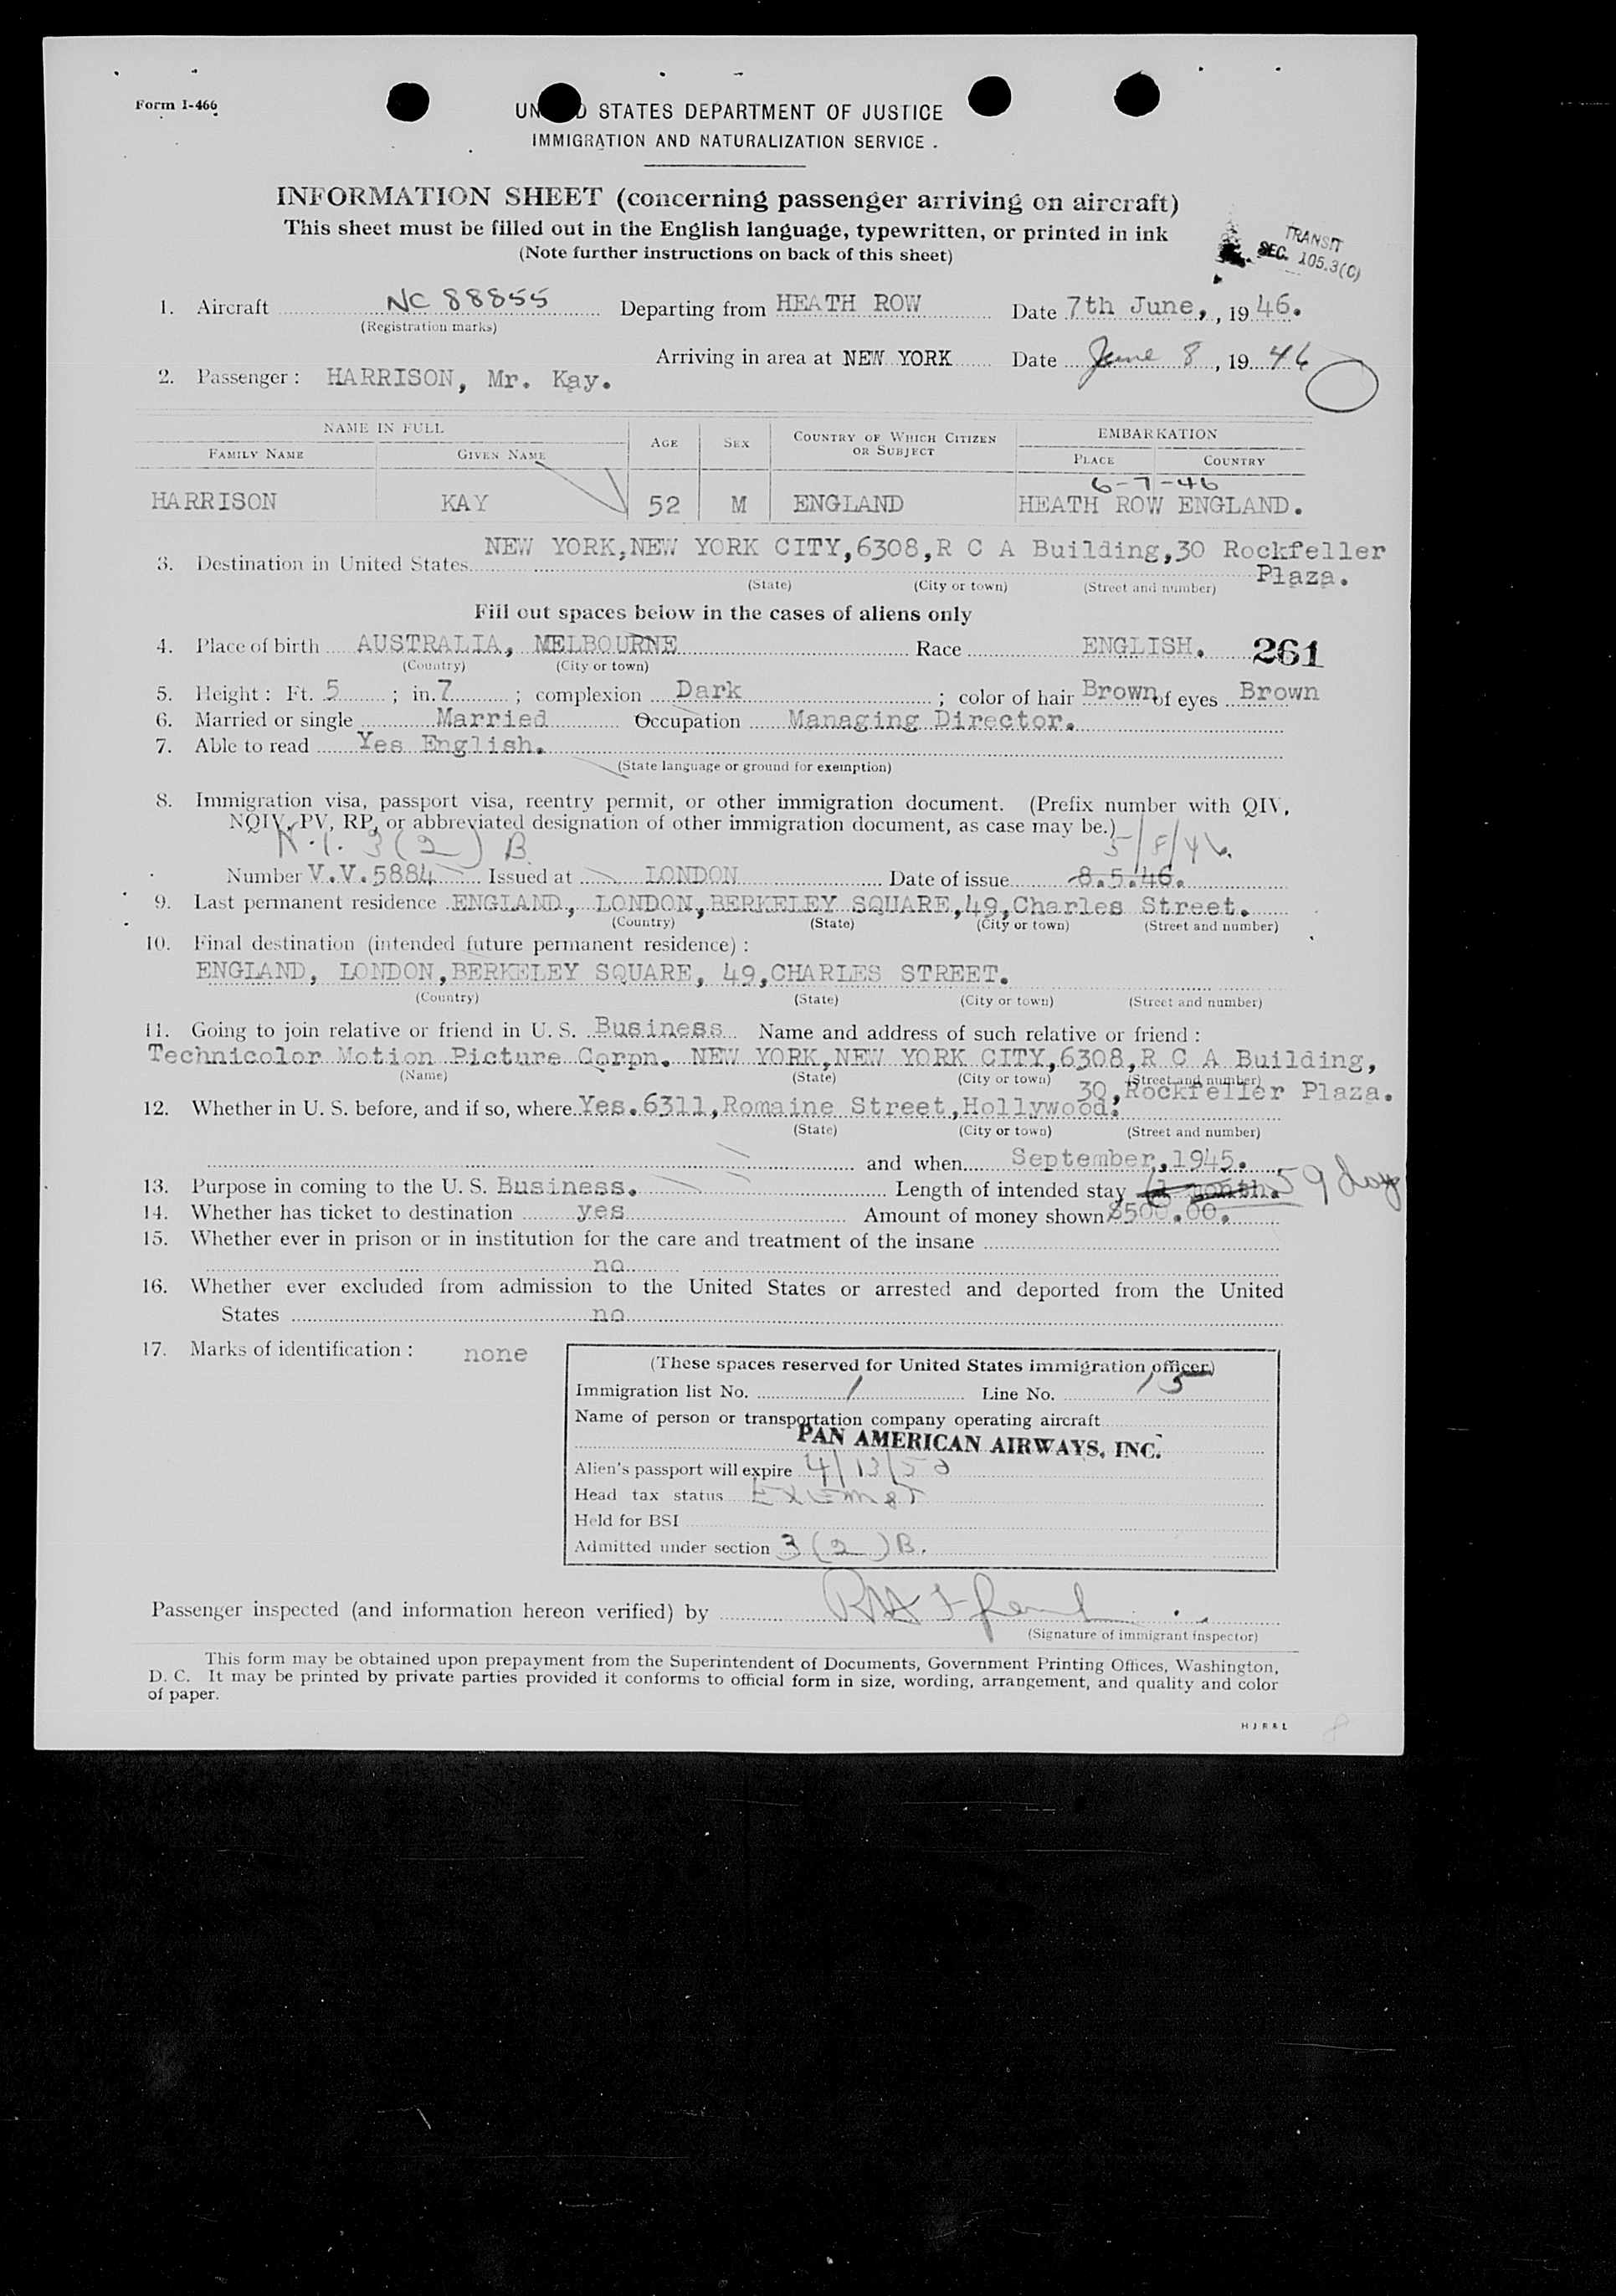 Form I-466
UN D STATES DEPARTMENT OF JUSTICE
IMMIGRATION AND NATURALIZATION SERVICE .
INFORMATION SHEET (concerning passenger arriving on aircraft)
This sheet must be filled out in the English language, typewritten, or printed in ink
(Note further instructions on back of this sheet)
TRANSIT
SEC. 105.3(C)
1. Aircraft NC 88855 Departing from HEATH ROW Date 7th June, , 19 46.
(Registration marks)
Arriving in area at NEW YORK Date June 8 , 19 46
2. Passenger : HARRISON, Mr. Kay.
NAME IN FULL AGE SEX COUNTRY OF WHICH CITIZEN OR SUBJECT EMBARKATION
FAMILY NAME GIVEN NAME PLACE COUNTRY
6-7-46
HARRISON KAY 52 M ENGLAND HEATH ROW ENGLAND.
3. Destination in United States NEW YORK,NEW YORK CITY,6308,R C A Building,30 Rockfeller
Plaza.
(State) (City or town) (Street and number)
Fill out spaces below in the cases of aliens only
4. Place of birth AUSTRALIA, MELBOURNE Race ENGLISH. 261
(Country) (City or town)
5. Height : Ft. 5 ; in. 7 ; complexion Dark ; color of hair Brown of eyes Brown
6. Married or single Married Occupation Managing Director.
7. Able to read Yes English.
(State language or ground for exemption)
8. Immigration visa, passport visa, reentry permit, or other immigration document. (Prefix number with QIV,
NQIV, PV, RP, or abbreviated designation of other immigration document, as case may be.)
3(2) B 5/8/46.
Number V.V.5884 Issued at LONDON Date of issue 8.5.46.
9. Last permanent residence ENGLAND, LONDON,BERKELEY SQUARE,49,Charles Street.
(Country) (State) (City or town) (Street and number)
10. Final destination (intended future permanent residence) :
ENGLAND, LONDON,BERKELEY SQUARE, 49,CHARLES STREET.
(Country) (State) (City or town) (Street and number)
11. Going to join relative or friend in U. S. Business Name and address of such relative or friend :
Technicolor Motion Picture Corpn. NEW YORK,NEW YORK CITY,6308,R C A Building,
(Name) (State) (City or town) (Street and number)
30,Rockfeller Plaza.
12. Whether in U. S. before, and if so, where Yes.6311,Romaine Street,Hollywood.
(State) (City or town) (Street and number)
and when September,1945.
13. Purpose in coming to the U. S. Business. Length of intended stay 1 month. 59 days
14. Whether has ticket to destination yes Amount of money shown $500.00.
15. Whether ever in prison or in institution for the care and treatment of the insane
no
16. Whether ever excluded from admission to the United States or arrested and deported from the United
States no
17. Marks of identification : none
(These spaces reserved for United States immigration officer)
Immigration list No. 1 Line No. 15
Name of person or transportation company operating aircraft
PAN AMERICAN AIRWAYS, INC.
Alien's passport will expire 4/13/50
Head tax status Exempt
Held for BSI
Admitted under section 3 (2) B.
Passenger inspected (and information hereon verified) by
(Signature of immigrant inspector)
This form may be obtained upon prepayment from the Superintendent of Documents, Government Printing Offices, Washington,
D. C. It may be printed by private parties provided it conforms to official form in size, wording, arrangement, and quality and color
of paper.
H J R & L
8